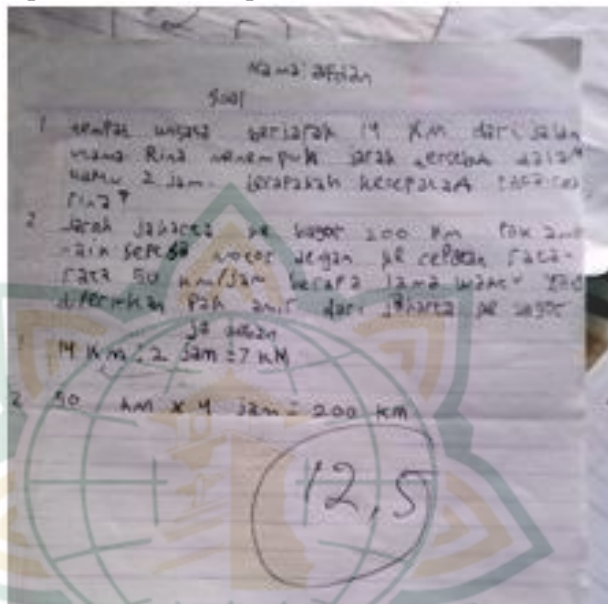 Nama: afdan
Soal
1 tempat wisata berjarak 14 Km dari jalan
utama Rina menempuh jarak tersebut dalam
waktu 2 jam. berapakah kecepatan rata-rata
rina?
2 Jarak jakarta ke bogor 200 km Pak amir
naik sepeda motor dengan ke cepatan rata-
rata 50 km/jam berapa lama waktu yang
diperlukan Pak amir dari jakarta ke bogor
ja waban
1 14 Km : 2 jam = 7 kM
2 50 km x 4 jam = 200 km
12,5